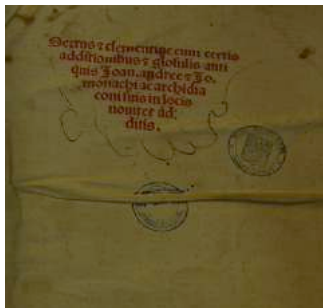 Sextus ⁊ clementine cum certis
additionibus ⁊ glosulis anti
quis Joan. andree ⁊ Jo.
monachi ac archidia
coni suis in locis
nouiter ad:
ditis.